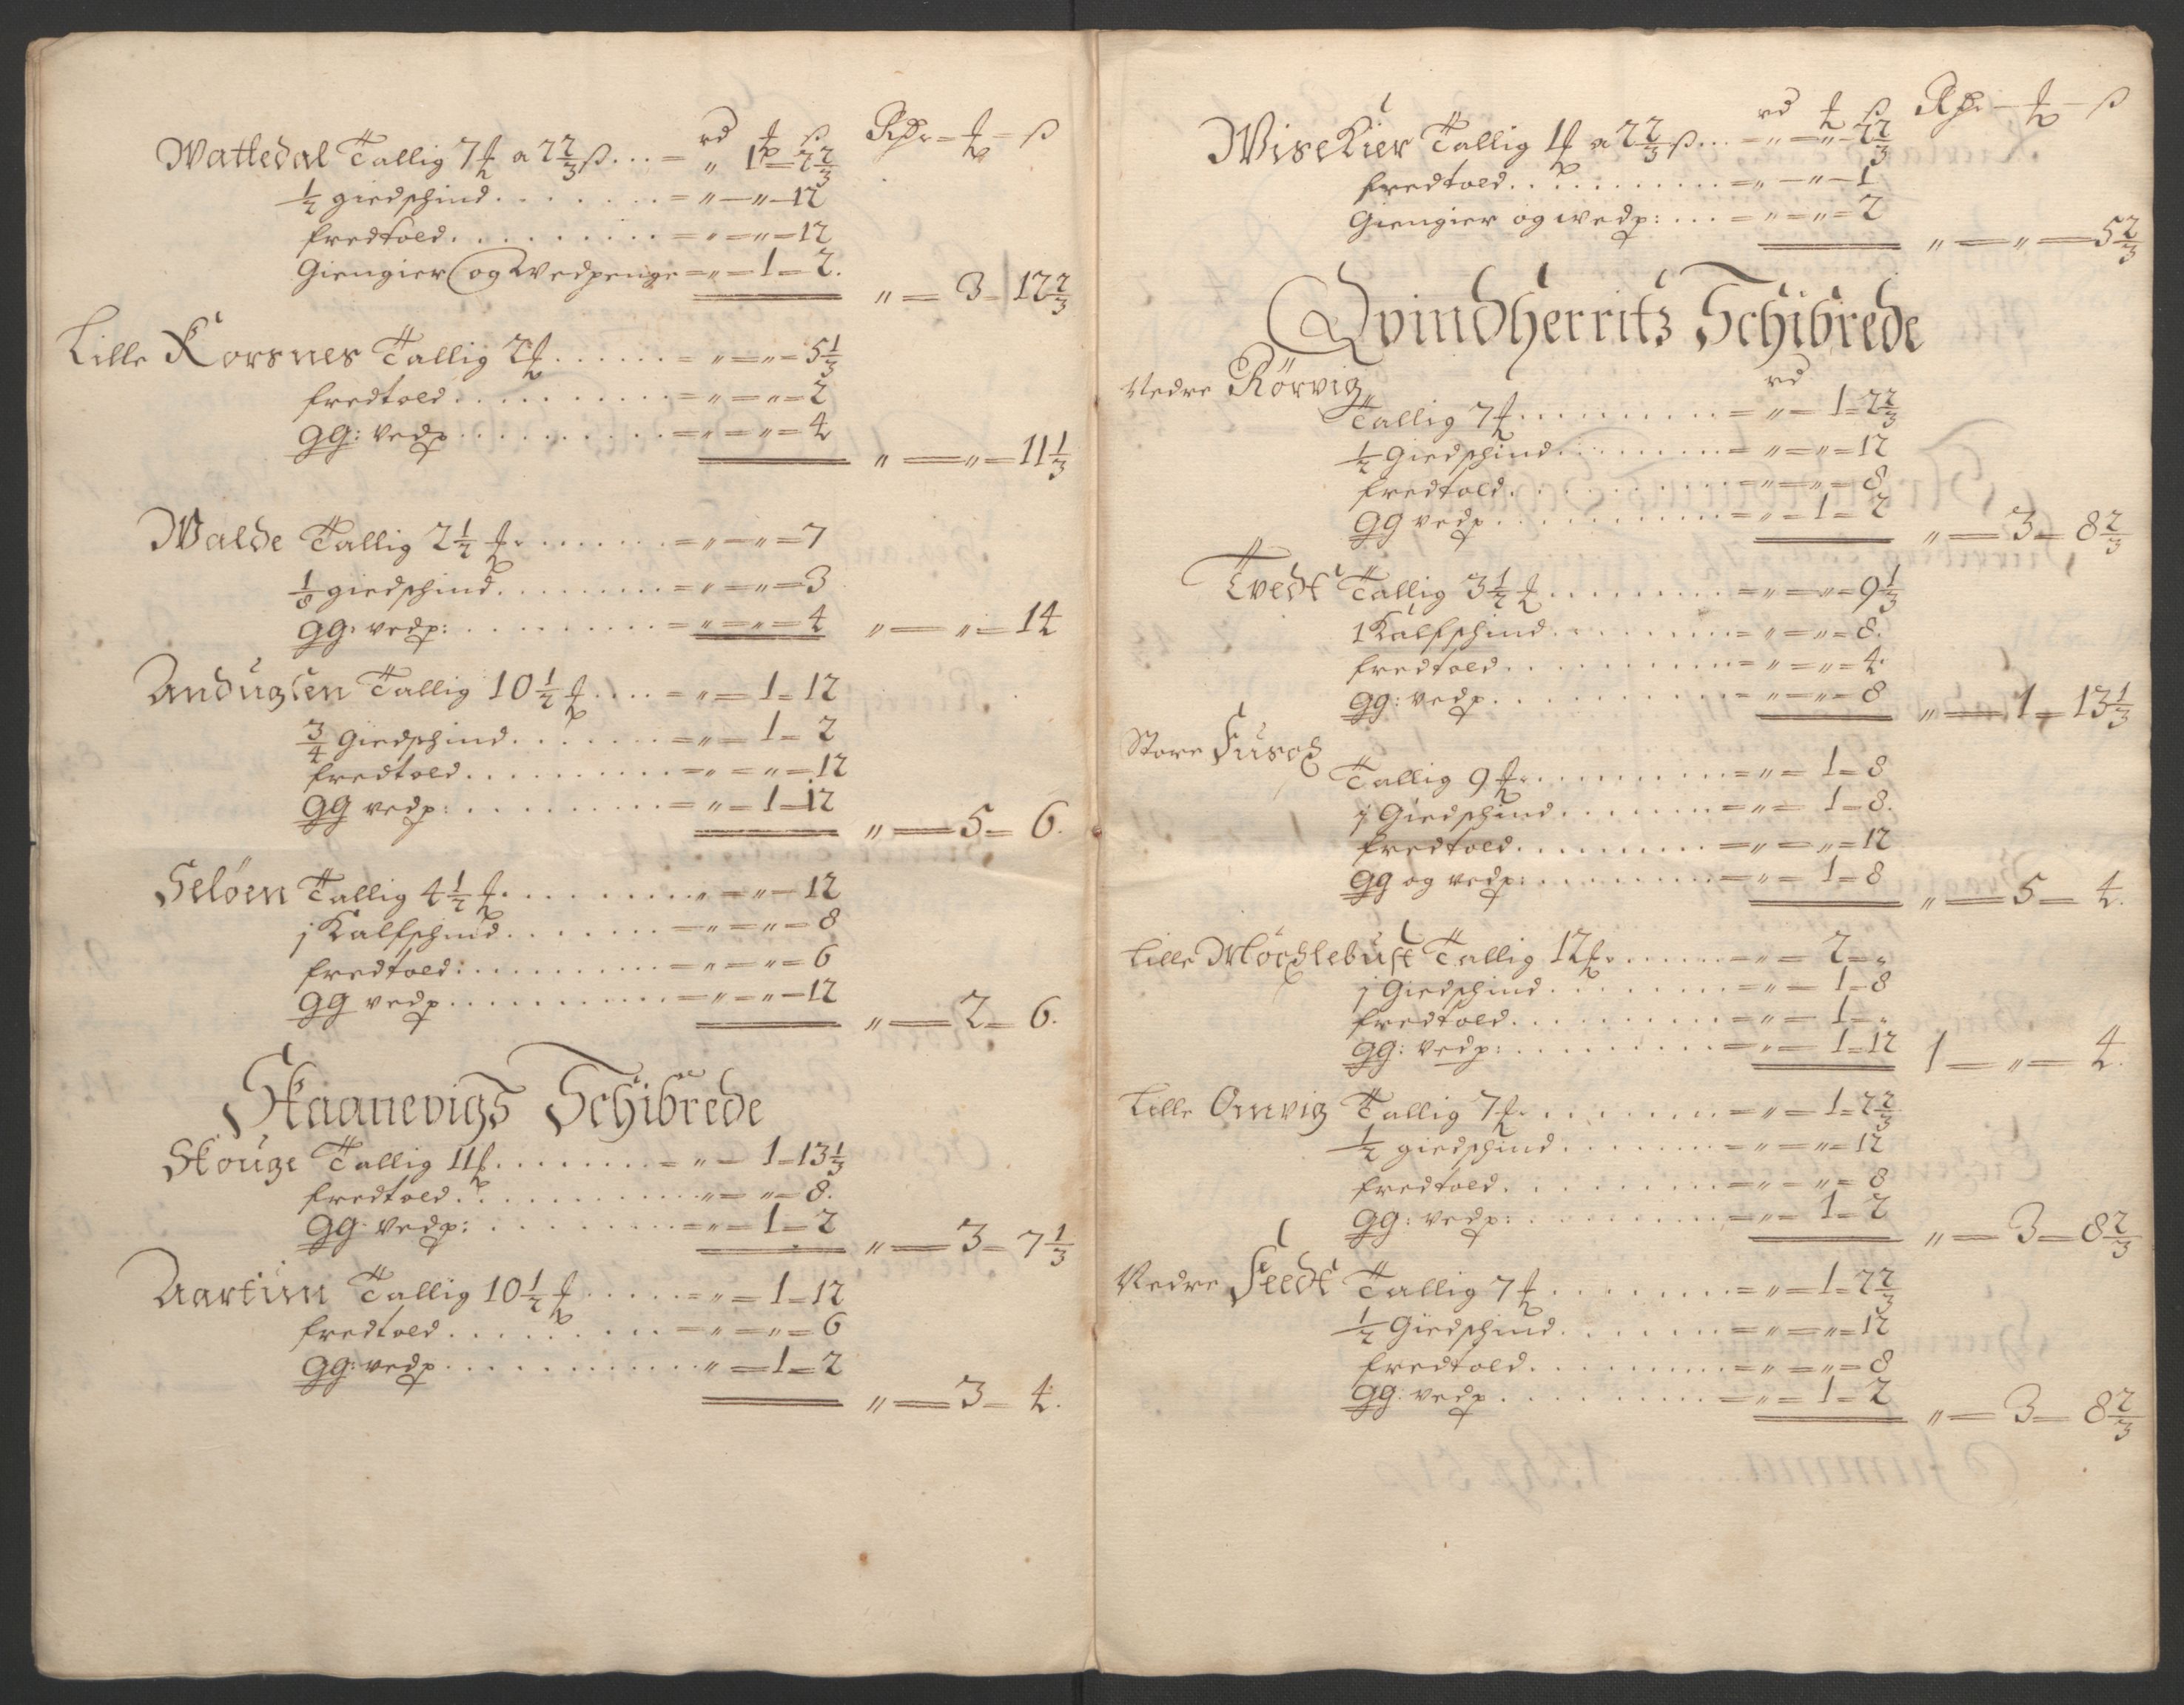 rd ℔ ß Rdr = ℔ = ß
Watledal Tallig 7 ℔ a 2 2/3 ß ... = „ 1 = 2 2/3
1/2 giedschind . . . . . . = „ — „ — 12
fredtold . . . . . . . . . = „ = „ = 12
Giengier og Wedpenge = „ = 1 = 2. „ = 3 = 12 2/3
Lille Korsnes Tallig 2 ℔ . . . . . . = „ = „ = 5 1/3
fredtold . . . . . . . . . = „ = „ = 2
gg: vedp . . . . . . . . . = „ = „ = 4 „ = „ = 11 1/3
Walde Tallig 2 1/2 ℔ . . . . . . . = „ = „ = 7
1/8 giedschind . . . . . . . . = „ = „ = 3
gg: vedp: . . . . . . . . . = „ = „ = 4 „ = „ = 14
Anduglen Tallig 10 1/2 ℔ . . . . = „ = 1 = 12
3/4 Giedschind . . . . . . = „ = 1 = 2
fredtold . . . . . . . . . = „ = „ = 12
gg vedp: . . . . . . . . . = „ = 1 = 12 „ = 5 = 6.
Seløen Tallig 4 1/2 ℔ . . . . . . . . „ = „ = 12
j Kalfschind . . . . . . . = „ = „ = 8
fredtold: . . . . . . . . . = „ = „ = 6
gg vedp . . . . . . . . . . = „ = „ = 12 „ = 2 = 6.
Skaanevigs Schibrede
Skouge Tallig 11 ℔ . . . . . . . = „ = 1 = 13 1/3
fredtold . . . . . . . . . „ = „ = 8.
gg: vedp: . . . . . . . . = „ = 1 = 2 „ = 3 = 7 1/3
Aartun Tallig 10 1/2 ℔ . . . . . = „ = 1 = 12
fredtold . . . . . . . . . = „ = „ = 6
gg: vedp . . . . . . . . . . „ = 1 = 2
„ = 3 = 4.
rd ℔ ß Rdr = ℔ = ß
Wisekier Tallig 1 ℔ a 2 2/3 ß ... = „ = „ = 2 2/3
fredtold . . . . . . . . . = „ — „ — 1
Giengier og wedp: . . . = „ = „ = 2
„ = „ = 5 2/3
Qvindherritz Schibrede
Nedre Rörvig rd
Tallig 7 ℔ . . . . . . . . . = „ = 1 = 2 2/3
1/2 Giedschind . . . . . . . . = „ = „ = 12
fredtold . . . . . . . . . . = „ = „ = 8
gg vedp . . . . . . . . . . = „ = 1 = 2 „ = 3 = 8 2/3
Tvedt Tallig 3 1/2 ℔ . . . . . . . . = „ = „ = 9 1/3
1 Kalfschind . . . . . . . . = „ = „ = 8.
fredtold . . . . . . . . . . = „ = „ = 4.
gg: vedp . . . . . . . . . . = „ = „ = 8 „ = 1 = 13 1/3
Store
Tallig 9 ℔ . . . . . . . . . = „ = 1 = 8
j Giedschind . . . . . . . . = „ = 1 = 8.
fredtold . . . . . . . . . . = „ = „ = 12
gg og vedp: . . . . . . . . = „ = 1 = 8 „ = 5 = 4.
Lille Möchlebust Tallig 12 ℔ . . . . . . = „ = 2 = „
j Giedschind . . . . . . . . = „ = 1 = 8
fredtold . . . . . . . . . . = „ = 1 = „
gg: vedp: . . . . . . . . . = „ = 1 = 12 1 = „ = 4.
Lille Omvig Tallig 7 ℔ . . . . . . . . = „ = 1 = 2 2/3
1/2 giedschind . . . . . . . = „ = „ = 12
fredtold . . . . . . . . . . = „ = „ = 8
gg: vedp: . . . . . . . . . = „ = 1 = 2 „ = 3 = 8 2/3
Nedre Feedt Tallig 7 ℔ . . . . . . . . = „ = 1 = 2 2/3
1/2 Giedschind . . . . . . . = „ = „ = 12
fredtold . . . . . . . . . = „ = „ = 8
gg: vedp . . . . . . . . . = „ = 1 = 2 „ = 3 = 8 2/3